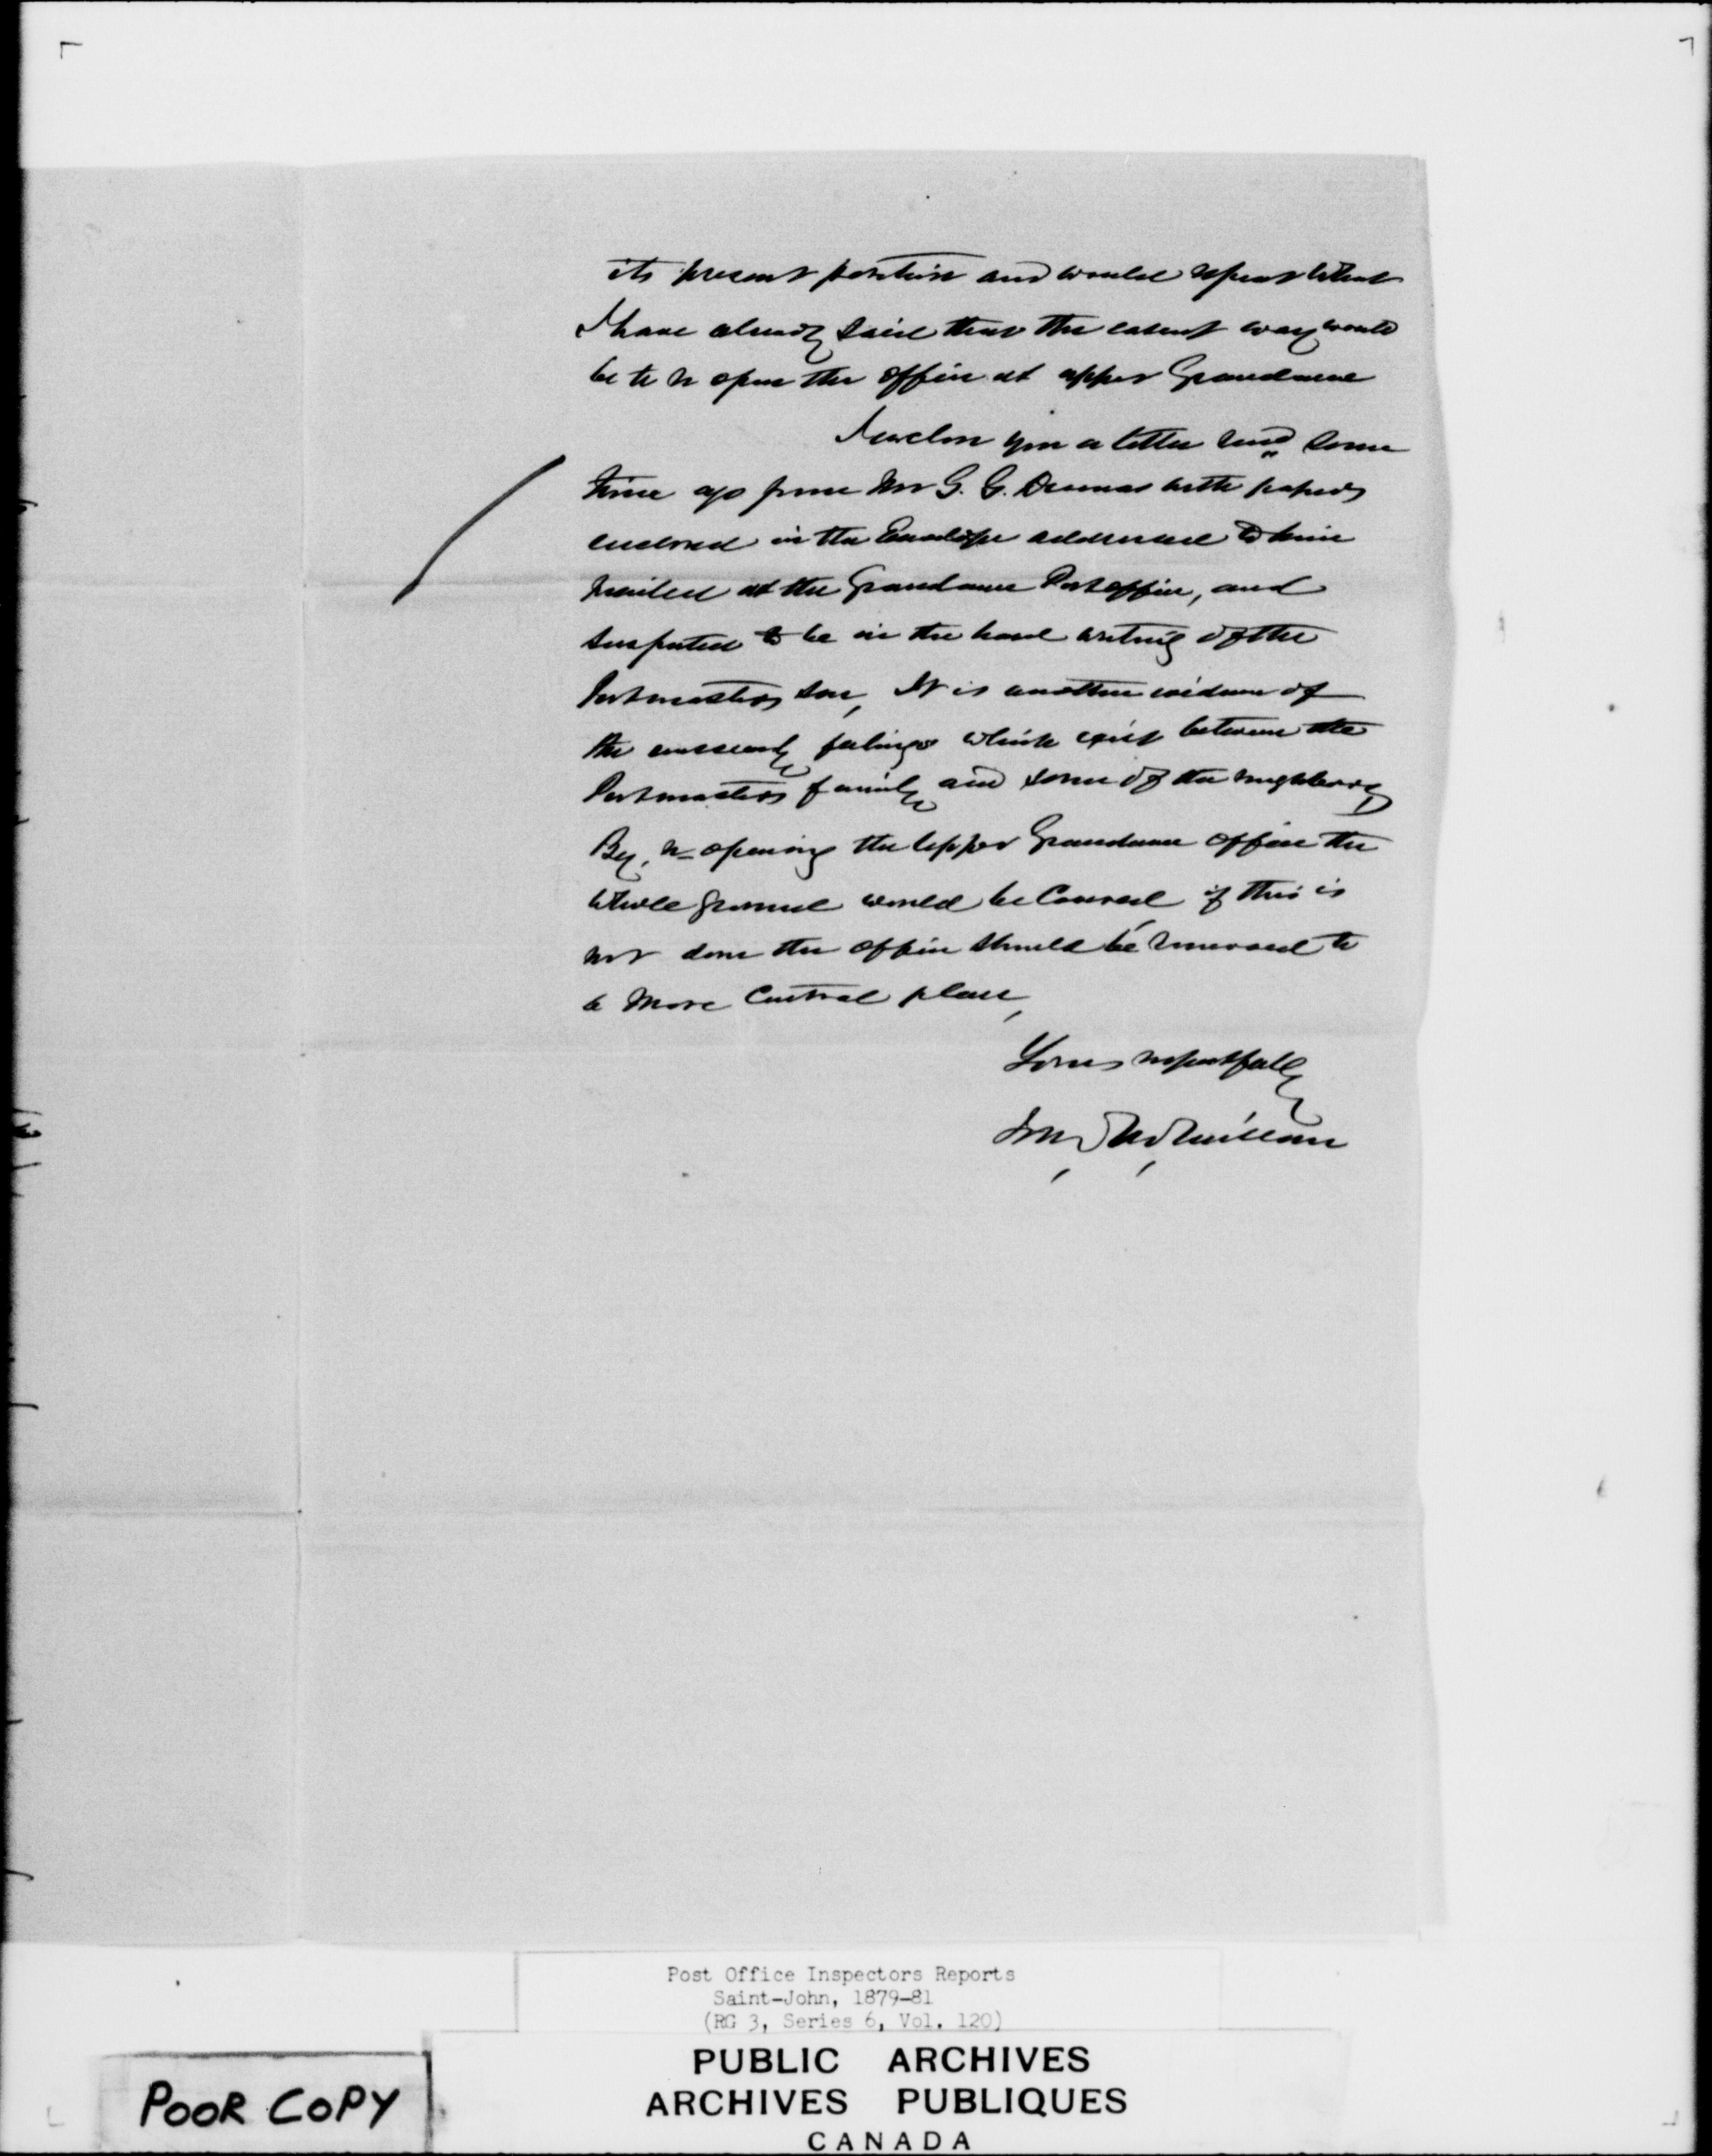 its present position and would repeat what
I have already said that the easiest way would
be to re open the office at upper Grandanse
I enclose you a letter recd some
time ago from Mr G. G. with papers
enclosed in the Envelope addressed to him
mailed at the Grandanse Post office, and
suspected to be in the hand writing of the
Postmasters son, It is another evidence of
the unseemly feelings which exist between the
Postmasters family and some of the neighbors
By re-opening the Upper Grandanse office the
whole ground would be Covered if this is
not done the office should be removed to
a More Central place,
Yours respectfully
Jno McMillan
Post Office Inspectors Reports
Saint-John, 1879-81
(RG 3, Series 6, Vol. 120)
PUBLIC ARCHIVES
ARCHIVES PUBLIQUES
CANADA
POOR COPY